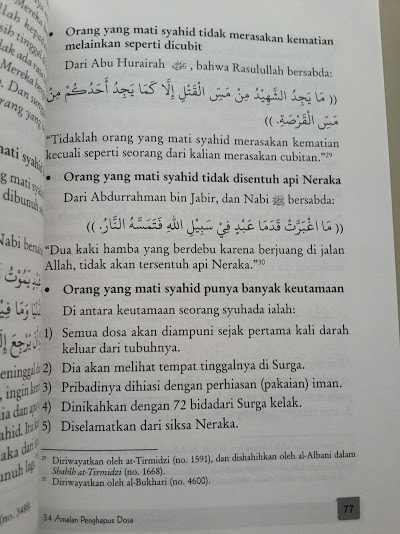 • Orang yang mati syahid tidak merasakan kematian
melainkan seperti dicubit
Dari Abu Hurairah ﷺ, bahwa Rasulullah bersabda:
(( مَا يَجِدُ الشَّهِيْدُ مِنْ مَسِّ الْقَتْلِ إِلَّا كَمَا يَجِدُ أَحَدُكُمْ مِنْ
مَسِّ الْقَرْصَةِ. ))
“Tidaklah orang yang mati syahid merasakan kematian
kecuali seperti seorang dari kalian merasakan cubitan.”²⁹
• Orang yang mati syahid tidak disentuh api Neraka
Dari Abdurrahman bin Jabir, dan Nabi ﷺ bersabda:
(( مَا اغْبَرَّتْ قَدَمَا عَبْدٍ فِيْ سَبِيْلِ اللهِ فَتَمَسَّهُ النَّارُ. ))
“Dua kaki hamba yang berdebu karena berjuang di jalan
Allah, tidak akan tersentuh api Neraka.”³⁰
• Orang yang mati syahid punya banyak keutamaan
Di antara keutamaan seorang syuhada ialah:
1) Semua dosa akan diampuni sejak pertama kali darah
keluar dari tubuhnya.
2) Dia akan melihat tempat tinggalnya di Surga.
3) Pribadinya dihiasi dengan perhiasan (pakaian) iman.
4) Dinikahkan dengan 72 bidadari Surga kelak.
5) Diselamatkan dari siksa Neraka.
²⁹ Diriwayatkan oleh at-Tirmidzi (no. 1591), dan dishahihkan oleh al-Albani dalam
Shahîh at-Tirmidzi (no. 1668).
³⁰ Diriwayatkan oleh al-Bukhari (no. 4600).
34 Amalan Penghapus Dosa
77